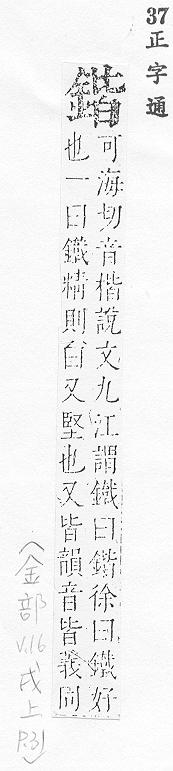 37 正字通
鍇
可海切音楷說文九江謂鐵曰鍇徐曰鐵好
也一曰鐵精則白又堅也又皆韻音皆義同
(金部
V.16
戌上
P.31)